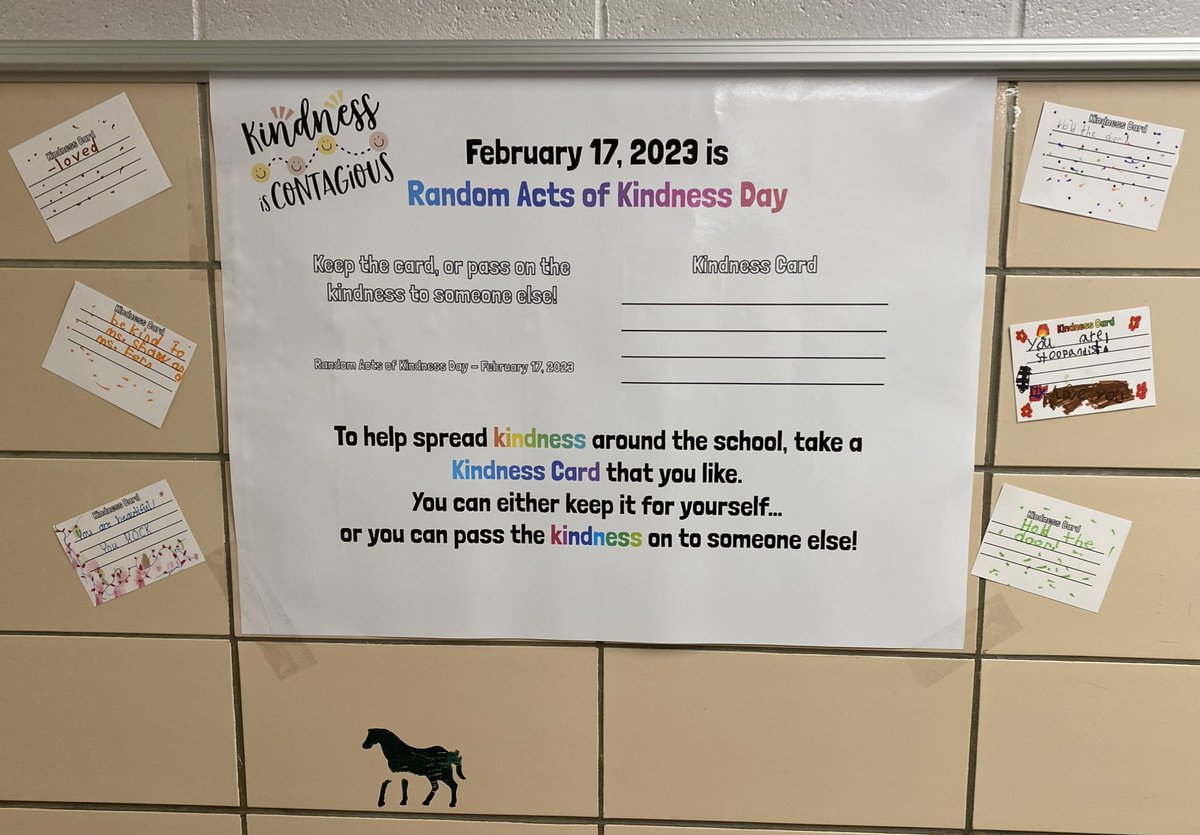 Kindness
is CONTAGIOUS
February 17, 2023 is
Random Acts of Kindness Day
Keep the card, or pass on the
kindness to someone else!
Random Acts of Kindness Day - February 17, 2023
Kindness Card
To help spread kindness around the school, take a
Kindness Card that you like.
You can either keep it for yourself...
or you can pass the kindness on to someone else!
Kindness Card
-loved
Kindness Card
be kind to
ms. shaw and
ms. Fern
Kindness Card
You are beautiful!
You ROCK
Kindness Card
Hold the
Kindness Card
You are
Kindness Card
Hold the
door!